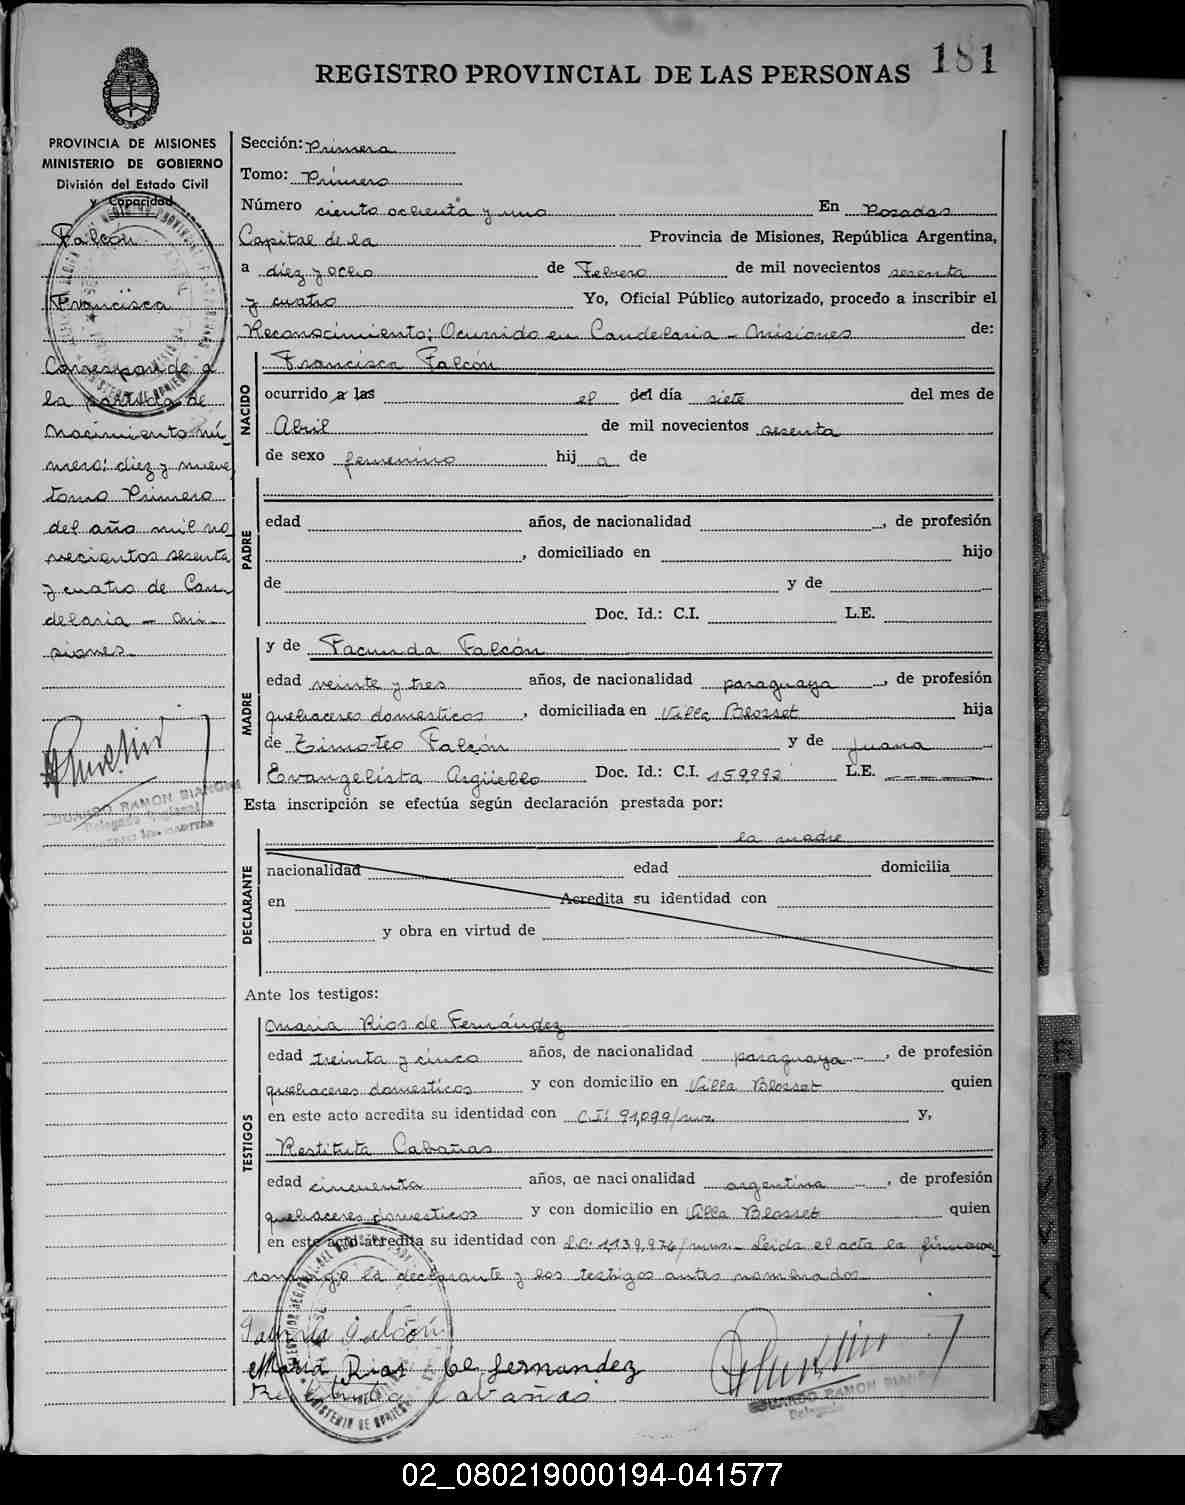 181
REGISTRO PROVINCIAL DE LAS PERSONAS
PROVINCIA DE MISIONES
MINISTERIO DE GOBIERNO
División del Estado Civil
y Capacidad
Falcón
Francisca
Corresponde a
la partida de
Nacimiento nú-
mero: diez y nueve
tomo Primero
del año mil no
vecientos sesenta
y cuatro de Can
delaria - Mi-
siones.
EDUARDO RAMON BIANCHI
Delegado
Sección: Primera
Tomo: Primero
Número ciento ochenta y uno En Posadas
Capital de la Provincia de Misiones, República Argentina,
a diez y ocho de Febrero de mil novecientos sesenta
y cuatro Yo, Oficial Público autorizado, procedo a inscribir el
Reconocimiento: Ocurrido en Candelaria - Misiones de:
NACIDO
Francisca Falcón
ocurrido a las el del día siete del mes de
Abril de mil novecientos sesenta
de sexo femenino hij a de
PADRE
edad años, de nacionalidad , de profesión
, domiciliado en hijo
de y de
Doc. Id.: C.I. L.E.
MADRE
y de Facunda Falcón
edad veinte y tres años, de nacionalidad paraguaya , de profesión
quehaceres domesticos , domiciliada en Villa Blosset hija
de Timoteo Falcón y de Juana
Evangelista Argüello Doc. Id.: C.I. 159992 L.E.
Esta inscripción se efectúa según declaración prestada por:
la madre
DECLARANTE
nacionalidad edad domicilia
en Acredita su identidad con
y obra en virtud de
Ante los testigos:
TESTIGOS
Maria Rios de Fernández
edad treinta y cinco años, de nacionalidad paraguaya , de profesión
quehaceres domesticos y con domicilio en Villa Blosset quien
en este acto acredita su identidad con C.I: 91,099/mnes. y,
Restituta Cabañas
edad cincuenta años, de nacionalidad argentina , de profesión
quehaceres domesticos y con domicilio en Villa Blosset quien
en este acto acredita su identidad con L.C. 1,139,976/mnes.- Leida el acta la firmaron
conmigo la declarante y los testigos antes nombrados
Falcón
Maria Rios de fernandez
Restituta Cabañas
EDUARDO RAMON BIANCHI
Delegado
02_080219000194-041577